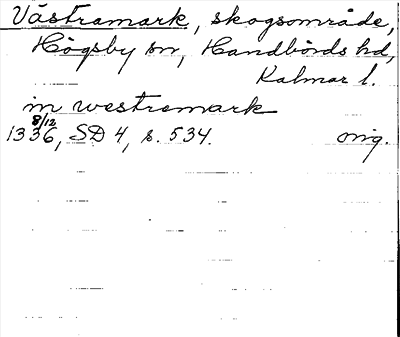 Västramark, skogsområde,
Högsby sn, Handbörds hd,
Kalmar l.
in westramark
8/12
1336, SD 4, s. 534. orig.